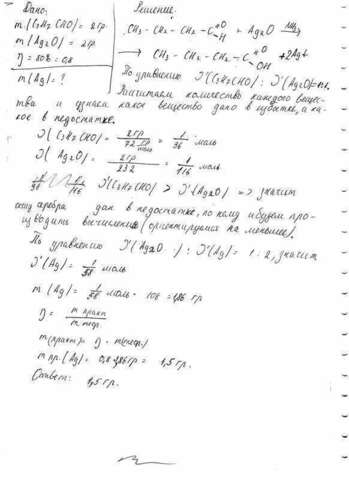 Дано:
m(C3H7CHO) = 2гр
m(Ag2O) = 2гр
η = 80% = 0,8
m(Ag) = ?
Решение:
CH3 - CH2 - CH2 - C =O H + Ag2O NH3→
→ CH3 - CH2 - CH2 - C =O OH + 2Ag↓
По уравнению ν(C3H7CHO) : ν(Ag2O) = 1:1.
Рассчитаем количество каждого вещес-
тва и узнаем какое вещество дано в избытке, и ка-
кое в недостатке.
ν(C3H7CHO) = 2гр / 72 гр/моль = 1/36 моль
ν(Ag2O) = 2гр / 232 = 1/116 моль.
ν(C3H7CHO) > ν(Ag2O) => значит
оксид серебра дан в недостатке, по нему и будем про-
изводить вычисления (ориентируемся на меньшее).
По уравнению ν(Ag2O) : ν(Ag) = 1 : 2, значит
ν(Ag) = 1/58 моль
m(Ag) = 1/58 моль · 108 = 1,86 гр
η = m практ / m теор.
m(практ) = η · m(теор.)
m пр. (Ag) = 0,8 · 1,86 гр = 1,5 гр.
Ответ: 1,5 гр.